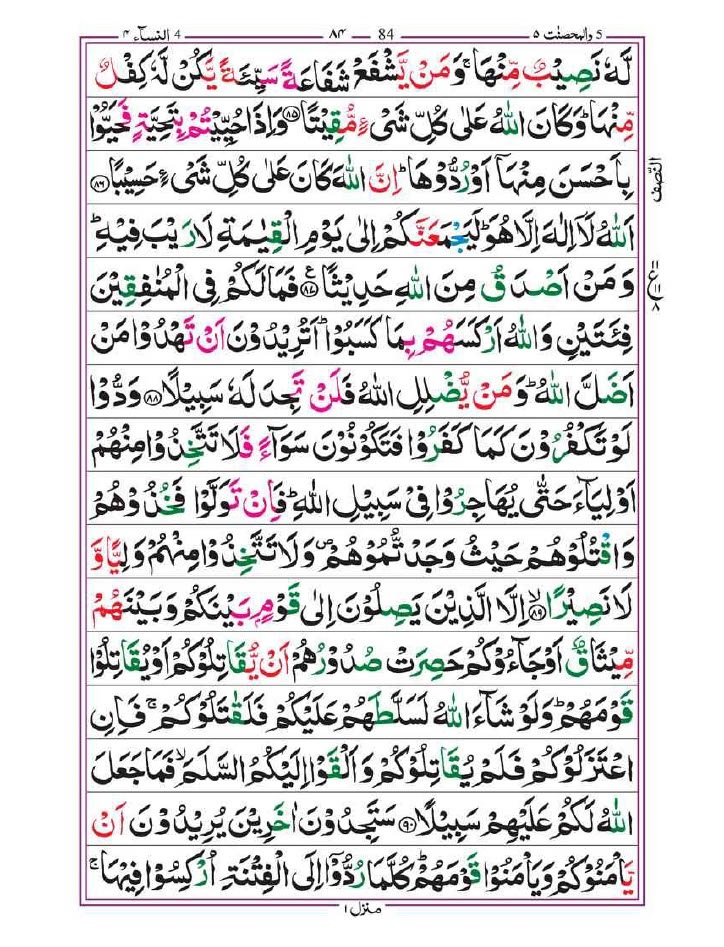 5 والمحصنٰت ۵ 84 ۸۴ 4 النسآء ۴
لَّهٗ نَصِيْبٌ مِّنْهَا ۚ وَمَنْ يَّشْفَعْ شَفَاعَةً سَيِّئَةً يَّكُنْ لَّهٗ كِفْلٌ
مِّنْهَا ؕ وَكَانَ اللّٰهُ عَلٰى كُلِّ شَىْءٍ مُّقِيْتًا ۝۸۵ وَاِذَا حُيِّيْتُمْ بِتَحِيَّةٍ فَحَيُّوْا
بِاَحْسَنَ مِنْهَاۤ اَوْ رُدُّوْهَا ؕ اِنَّ اللّٰهَ كَانَ عَلٰى كُلِّ شَىْءٍ حَسِيْبًا ۝۸۶
النّصف
اَللّٰهُ لَاۤ اِلٰهَ اِلَّا هُوَ ؕ لَيَجْمَعَنَّكُمْ اِلٰى يَوْمِ الْقِيٰمَةِ لَا رَيْبَ فِيْهِ ؕ
وَمَنْ اَصْدَقُ مِنَ اللّٰهِ حَدِيْثًا ۝۸۷ ع فَمَا لَكُمْ فِى الْمُنٰفِقِيْنَ
۱۱ ع ۱۱ ۸
فِئَتَيْنِ وَاللّٰهُ اَرْكَسَهُمْ بِمَا كَسَبُوْا ؕ اَتُرِيْدُوْنَ اَنْ تَهْدُوْا مَنْ
اَضَلَّ اللّٰهُ ؕ وَمَنْ يُّضْلِلِ اللّٰهُ فَلَنْ تَجِدَ لَهٗ سَبِيْلًا ۝۸۸ وَدُّوْا
لَوْ تَكْفُرُوْنَ كَمَا كَفَرُوْا فَتَكُوْنُوْنَ سَوَآءً فَلَا تَتَّخِذُوْا مِنْهُمْ
اَوْلِيَآءَ حَتّٰى يُهَاجِرُوْا فِىْ سَبِيْلِ اللّٰهِ ؕ فَاِنْ تَوَلَّوْا فَخُذُوْهُمْ
وَاقْتُلُوْهُمْ حَيْثُ وَجَدْتُّمُوْهُمْ ۪ وَلَا تَتَّخِذُوْا مِنْهُمْ وَلِيًّا وَّ
لَا نَصِيْرًا ۝۸۹ ۙ اِلَّا الَّذِيْنَ يَصِلُوْنَ اِلٰى قَوْمٍۭ بَيْنَكُمْ وَبَيْنَهُمْ
مِّيْثَاقٌ اَوْ جَآءُوْكُمْ حَصِرَتْ صُدُوْرُهُمْ اَنْ يُّقَاتِلُوْكُمْ اَوْ يُقَاتِلُوْا
قَوْمَهُمْ ؕ وَلَوْ شَآءَ اللّٰهُ لَسَلَّطَهُمْ عَلَيْكُمْ فَلَقٰتَلُوْكُمْ ۚ فَاِنِ
اعْتَزَلُوْكُمْ فَلَمْ يُقَاتِلُوْكُمْ وَاَلْقَوْا اِلَيْكُمُ السَّلَمَ ۙ فَمَا جَعَلَ
اللّٰهُ لَكُمْ عَلَيْهِمْ سَبِيْلًا ۝۹۰ سَتَجِدُوْنَ اٰخَرِيْنَ يُرِيْدُوْنَ اَنْ
يَّاْمَنُوْكُمْ وَيَاْمَنُوْا قَوْمَهُمْ ؕ كُلَّمَا رُدُّوْۤا اِلَى الْفِتْنَةِ اُرْكِسُوْا فِيْهَا ۚ
منزل ۱